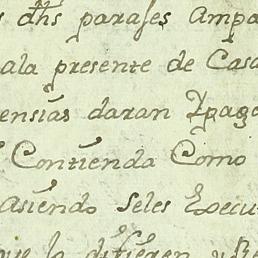 dhs parajes Ampa
ala presente de Casa
ensias daran Ypaga
Contienda Como
asiendo Seles Execu
que lo